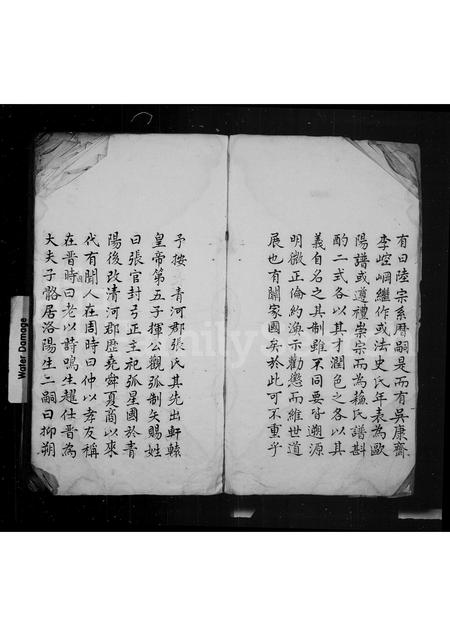 有曰陸宗系曆嗣是而有吳康齋
李崆峒繼作或法史氏年表為歐
陽譜或遵禮崇宗而為蘓氏譜斟
酌二式各以其才潤色之各以其
義自名之其制雖不同要皆遡源
明微正倫約漁示勸懲而維世道
展也有關家國矣於此可不重乎
予按 青河郡張氏其先出軒轅
皇帝第五子揮公觀弧制矢賜姓
曰張官封弓正主祀弧星國於青
陽後改清河郡歷堯舜夏商以來
代有聞人在周時曰仲以孝友稱
在晉時曰老以詩鳴生趯仕晉為
大夫子骼居洛陽生二嗣曰抑朔
Water Damage